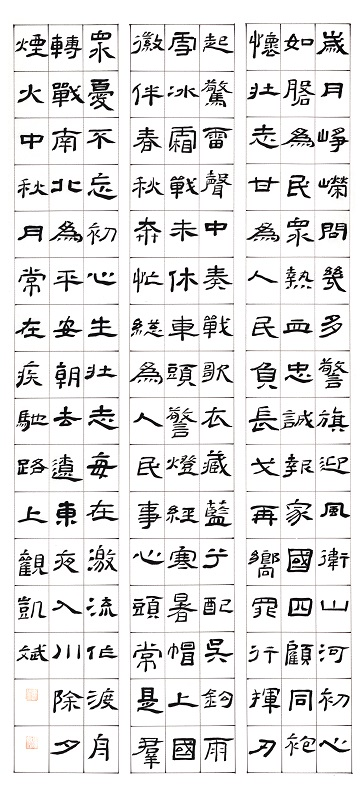 歲月崢嶸問幾多警旗迎風衛山河初心
如磐為民眾熱血忠誠報家國四顧同袍
懷壯志甘為人民負長戈再嚮罪行揮刀
起驚雷聲中奏戰歌衣藏藍兮配吳鉤雨
雪冰霜戰未休車頭警燈經寒暑帽上國
徽伴春秋奔忙縱為人民事心頭常是羣
眾憂不忘初心生壯志每在激流作渡舟
轉戰南北為平安朝去遺東夜入川除夕
煙火中秋月常在疾馳路上觀凱斌